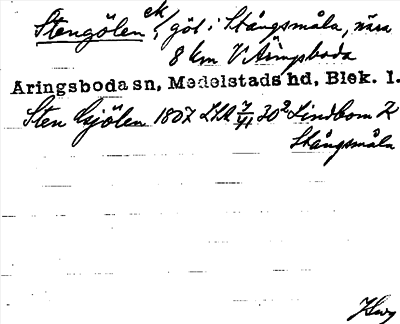 Stengölen ek/, göl i Stångsmåla, nära
8 km V Åringsboda
Aringsboda sn, Medelstads hd, Blek. l.
Sten Gsjölen 1807 LSA 7/VI 30² Lindbom K
Stångsmåla